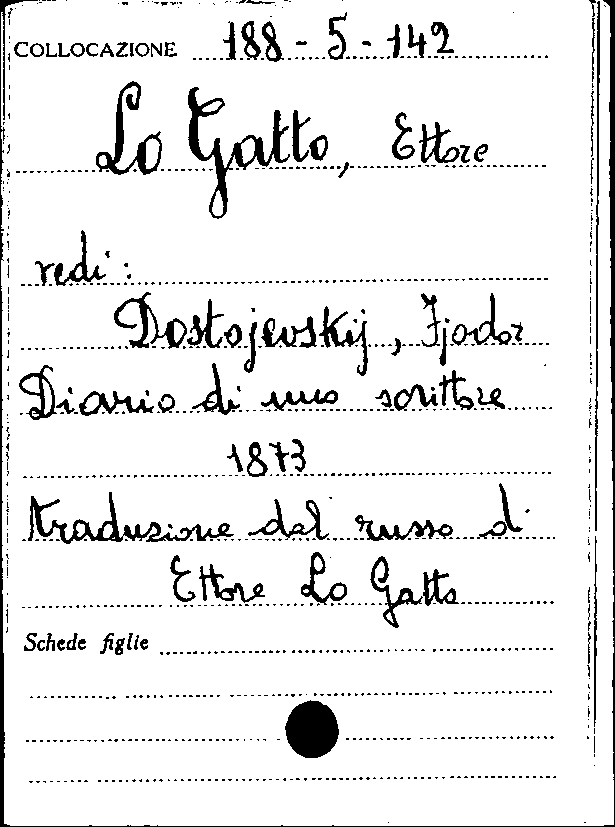 COLLOCAZIONE 188-5-142
Lo Gatto, Ettore
vedi:
Dostojevskij, Fjodor
Diario di uno scrittore
1873
traduzione dal russo di
Ettore Lo Gatto
Schede figlie